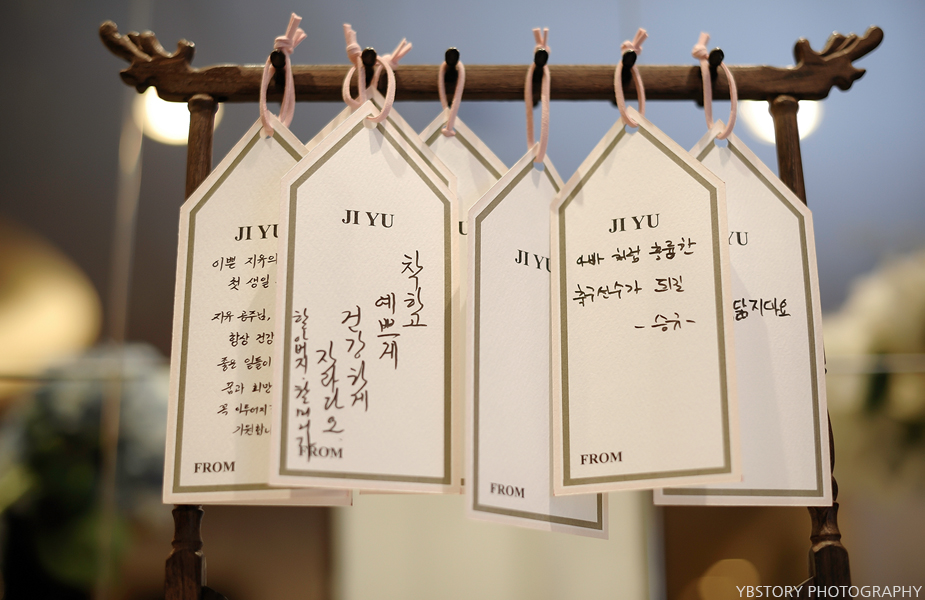 JI YU
이쁜 지유의
첫 생일
지유 공주님,
항상 건강
좋은 일들이
꿈과 희망
꼭 이루어지
FROM
JI YU
착하고
예쁘게
건강하게
자라다오
할아버지 할머니가
FROM
JI YU
FROM
JI YU
아빠 처럼 훌륭한
축구선수가 되길
- 승우 -
FROM
YU
닮지대요
YBSTORY PHOTOGRAPHY